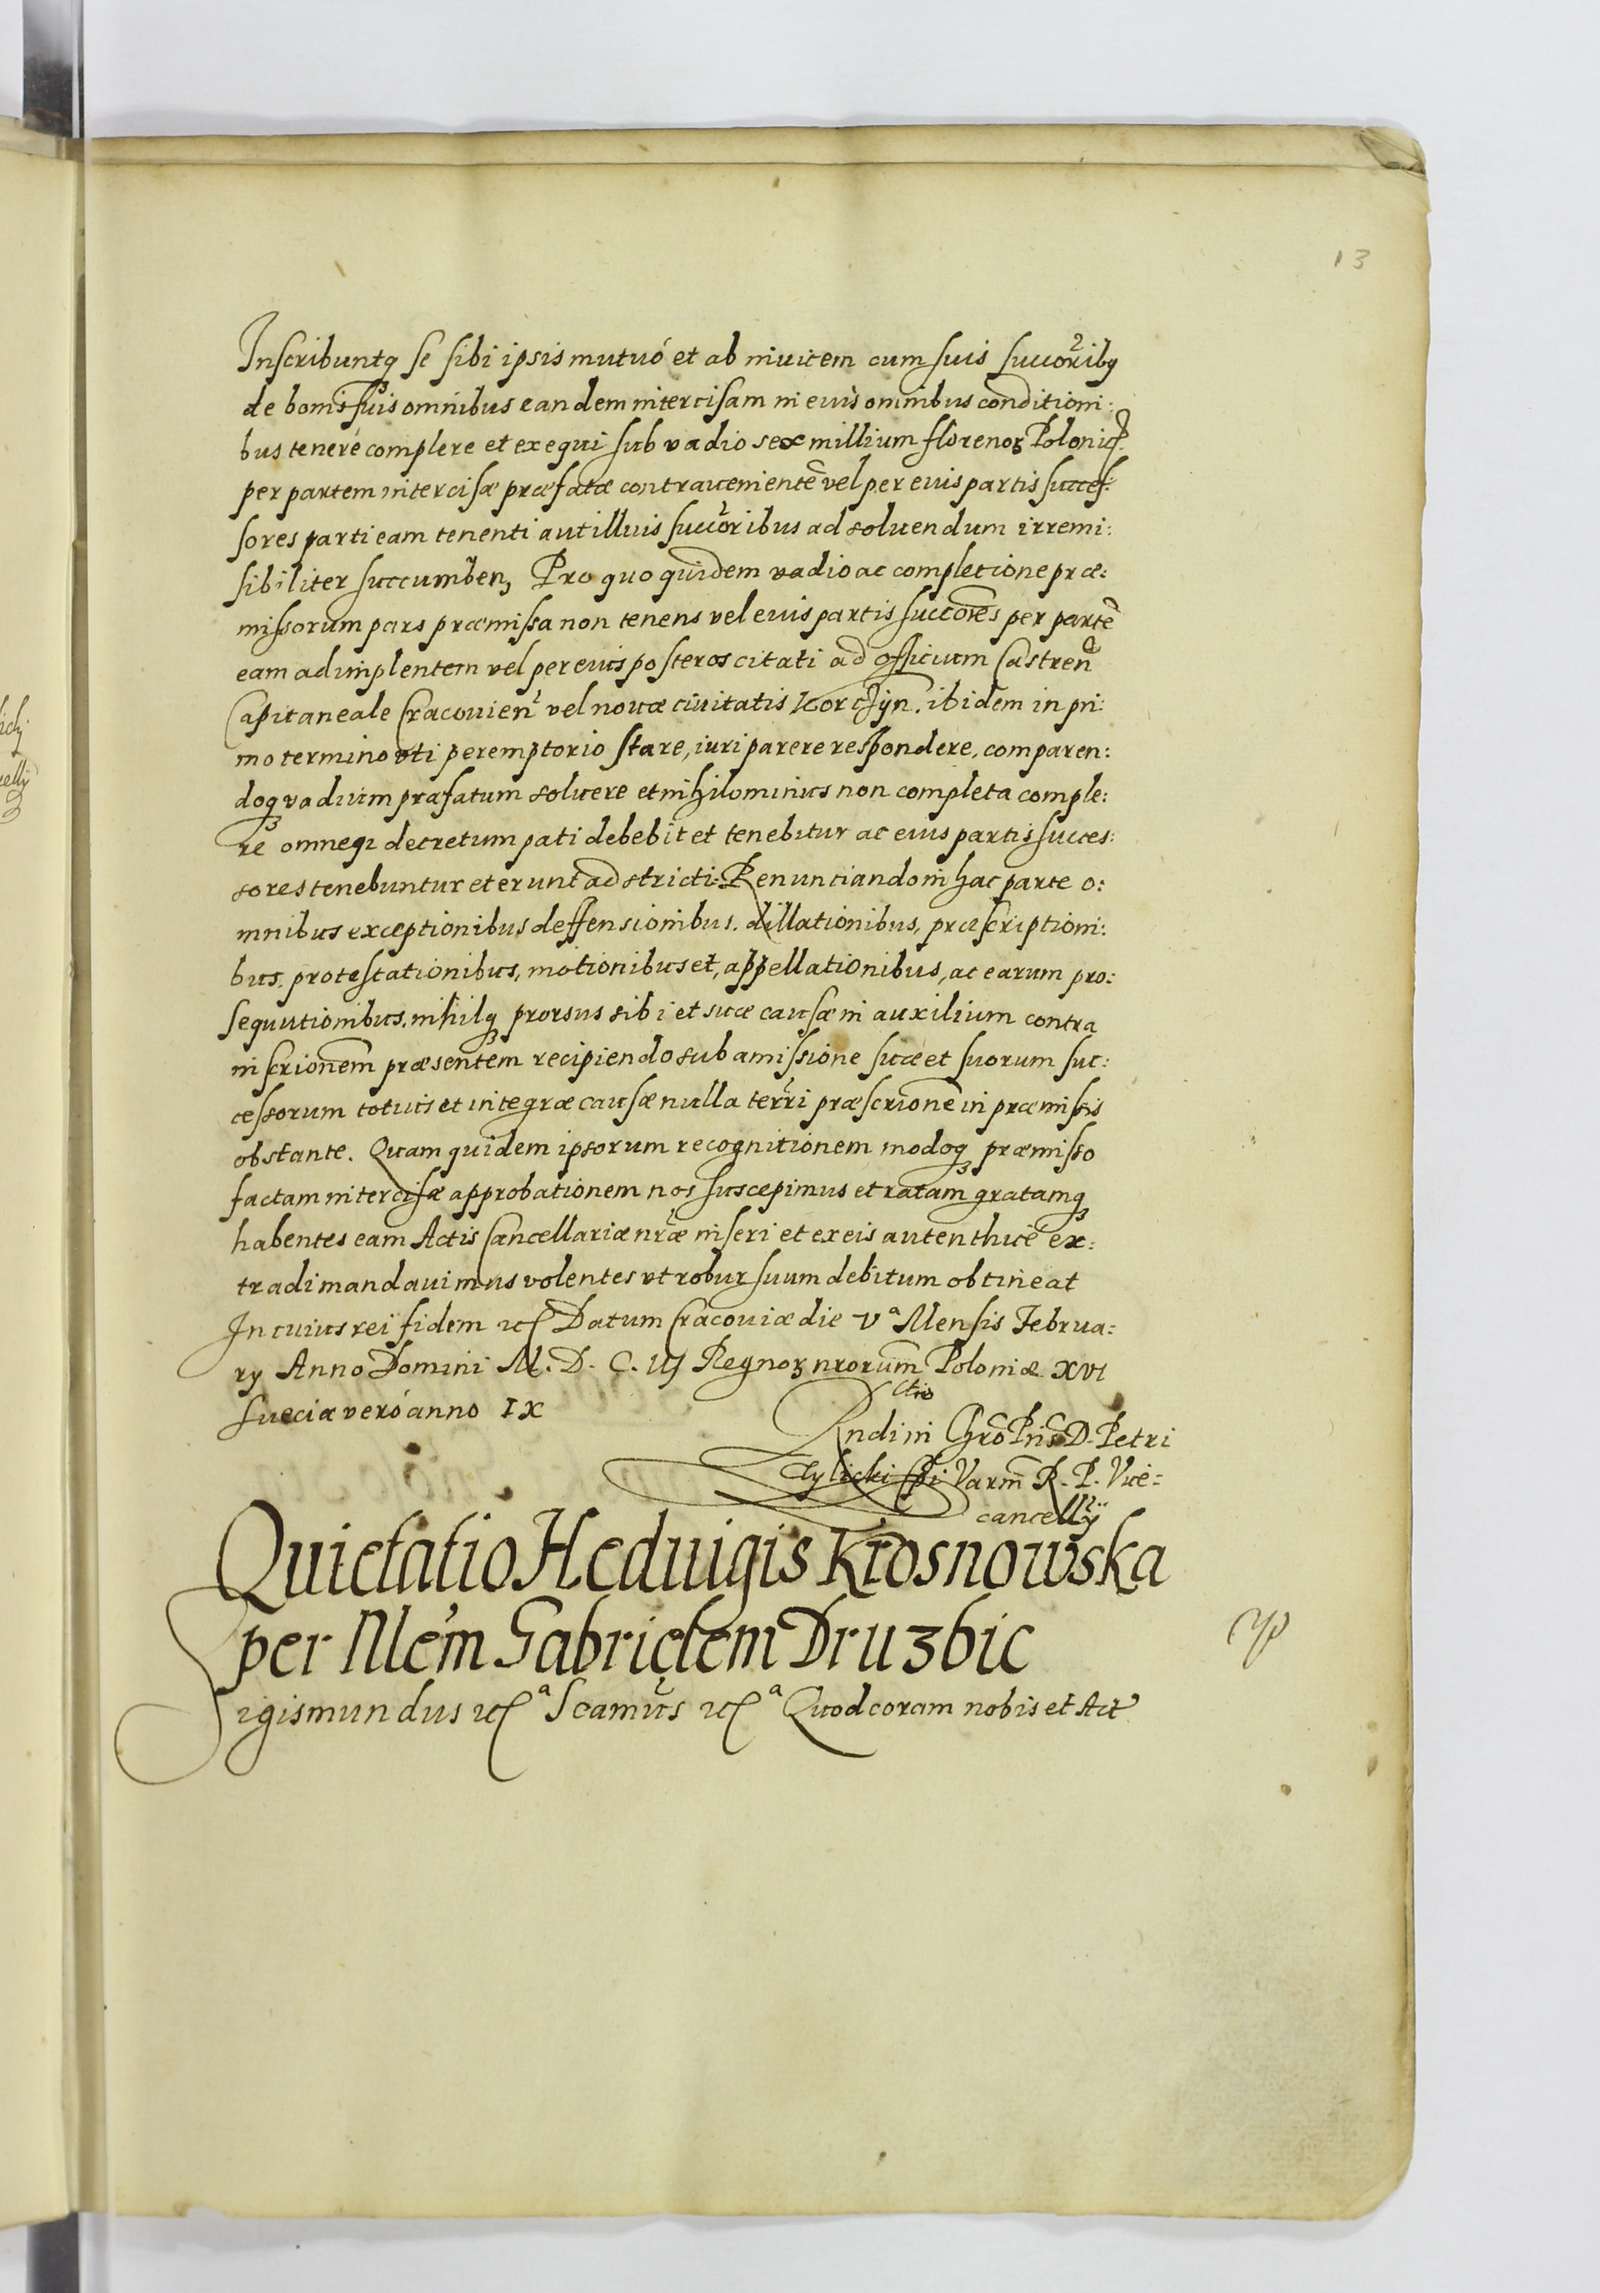 13
Inscribuntq se sibi ipsis mutuó et ab inuicem cum suis succoribq
de bonis suis omnibus eandem intercisam in euis omnibus conditioni:
bus tenere complere et exequi sub vadio sex millium florenoꝝ Polonic.
per partem intercisæ præfatæ contrauenientē vel per euis partis succes:
sores parti eam tenenti aut illius succoribus ad soluendum irremi:
sibiliter succumben, Pro quo quidem vadio ac completione præ:
missorum pars præmissa non tenens vel euis partis succores per partē
eam adimplentem vel per euis posteros citati ad officium Castren
Capitaneale Cracouien vel nouæ ciuitatis Korczyn. ibidem in pri:
mo termino vti peremptorio stare, iuri parere respondere, comparen:
doq vadium præfatum soluere et nihilominus non completa comple:
re omneq decretum pati debebit et tenebitur ac euis partis succes:
sores tenebuntur et erunt adstricti: Renunciando in hac parte o:
mnibus exceptionibus deffensionibus. dillationibus, præscriptioni:
bus, protestationibus, motionibus et, appellationibus, ac earum pro:
sequutionibus, nihilq prorsus sibi et suæ causæ in auxilium contra
inscrionem præsentem recipiendo sub amissione suæ et suorum suc:
cessorum totius et integræ causæ nulla terri præscrionē in præmissis
obstante. Quam quidem ipsorum recognitionem modoq præmisso
factam intercisæ approbationem nos suscepimus et ratam gratamq
habentes eam Actis Cancellariæ nræ inseri et ex eis autenthicē ex:
tradi mandauimus volentes vt robur suum debitum obtineat
In cuius rei fidem etc Datum Cracouiæ die Vª Mensis Februa:
ry Anno Domini M. D. C. III Regnoꝝ nrorum Poloniæ XVI
Sueciæ veró anno IX
Rndi in Chro Pris D. Petri
Tylicki Epi Varm R. P. Vice=
cancellÿ
Quietatio Heduigis Krosnowska
per Mem Gabrielem Druzbic
Sigismundus etcª Seamus etcª Quod coram nobis et Act